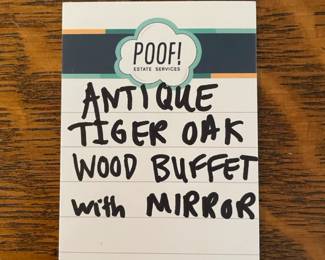 POOF!
ESTATE SERVICES
ANTIQUE
TIGER OAK
WOOD BUFFET
with MIRROR